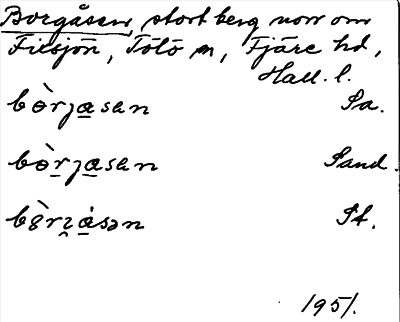 Borgåsen, stort berg norr om
Fiesjön, Tölö sn, Fjäre hd,
Hall. l.
bòrjasen Sa.
bòrjasen Sand.
Sf.
1951.